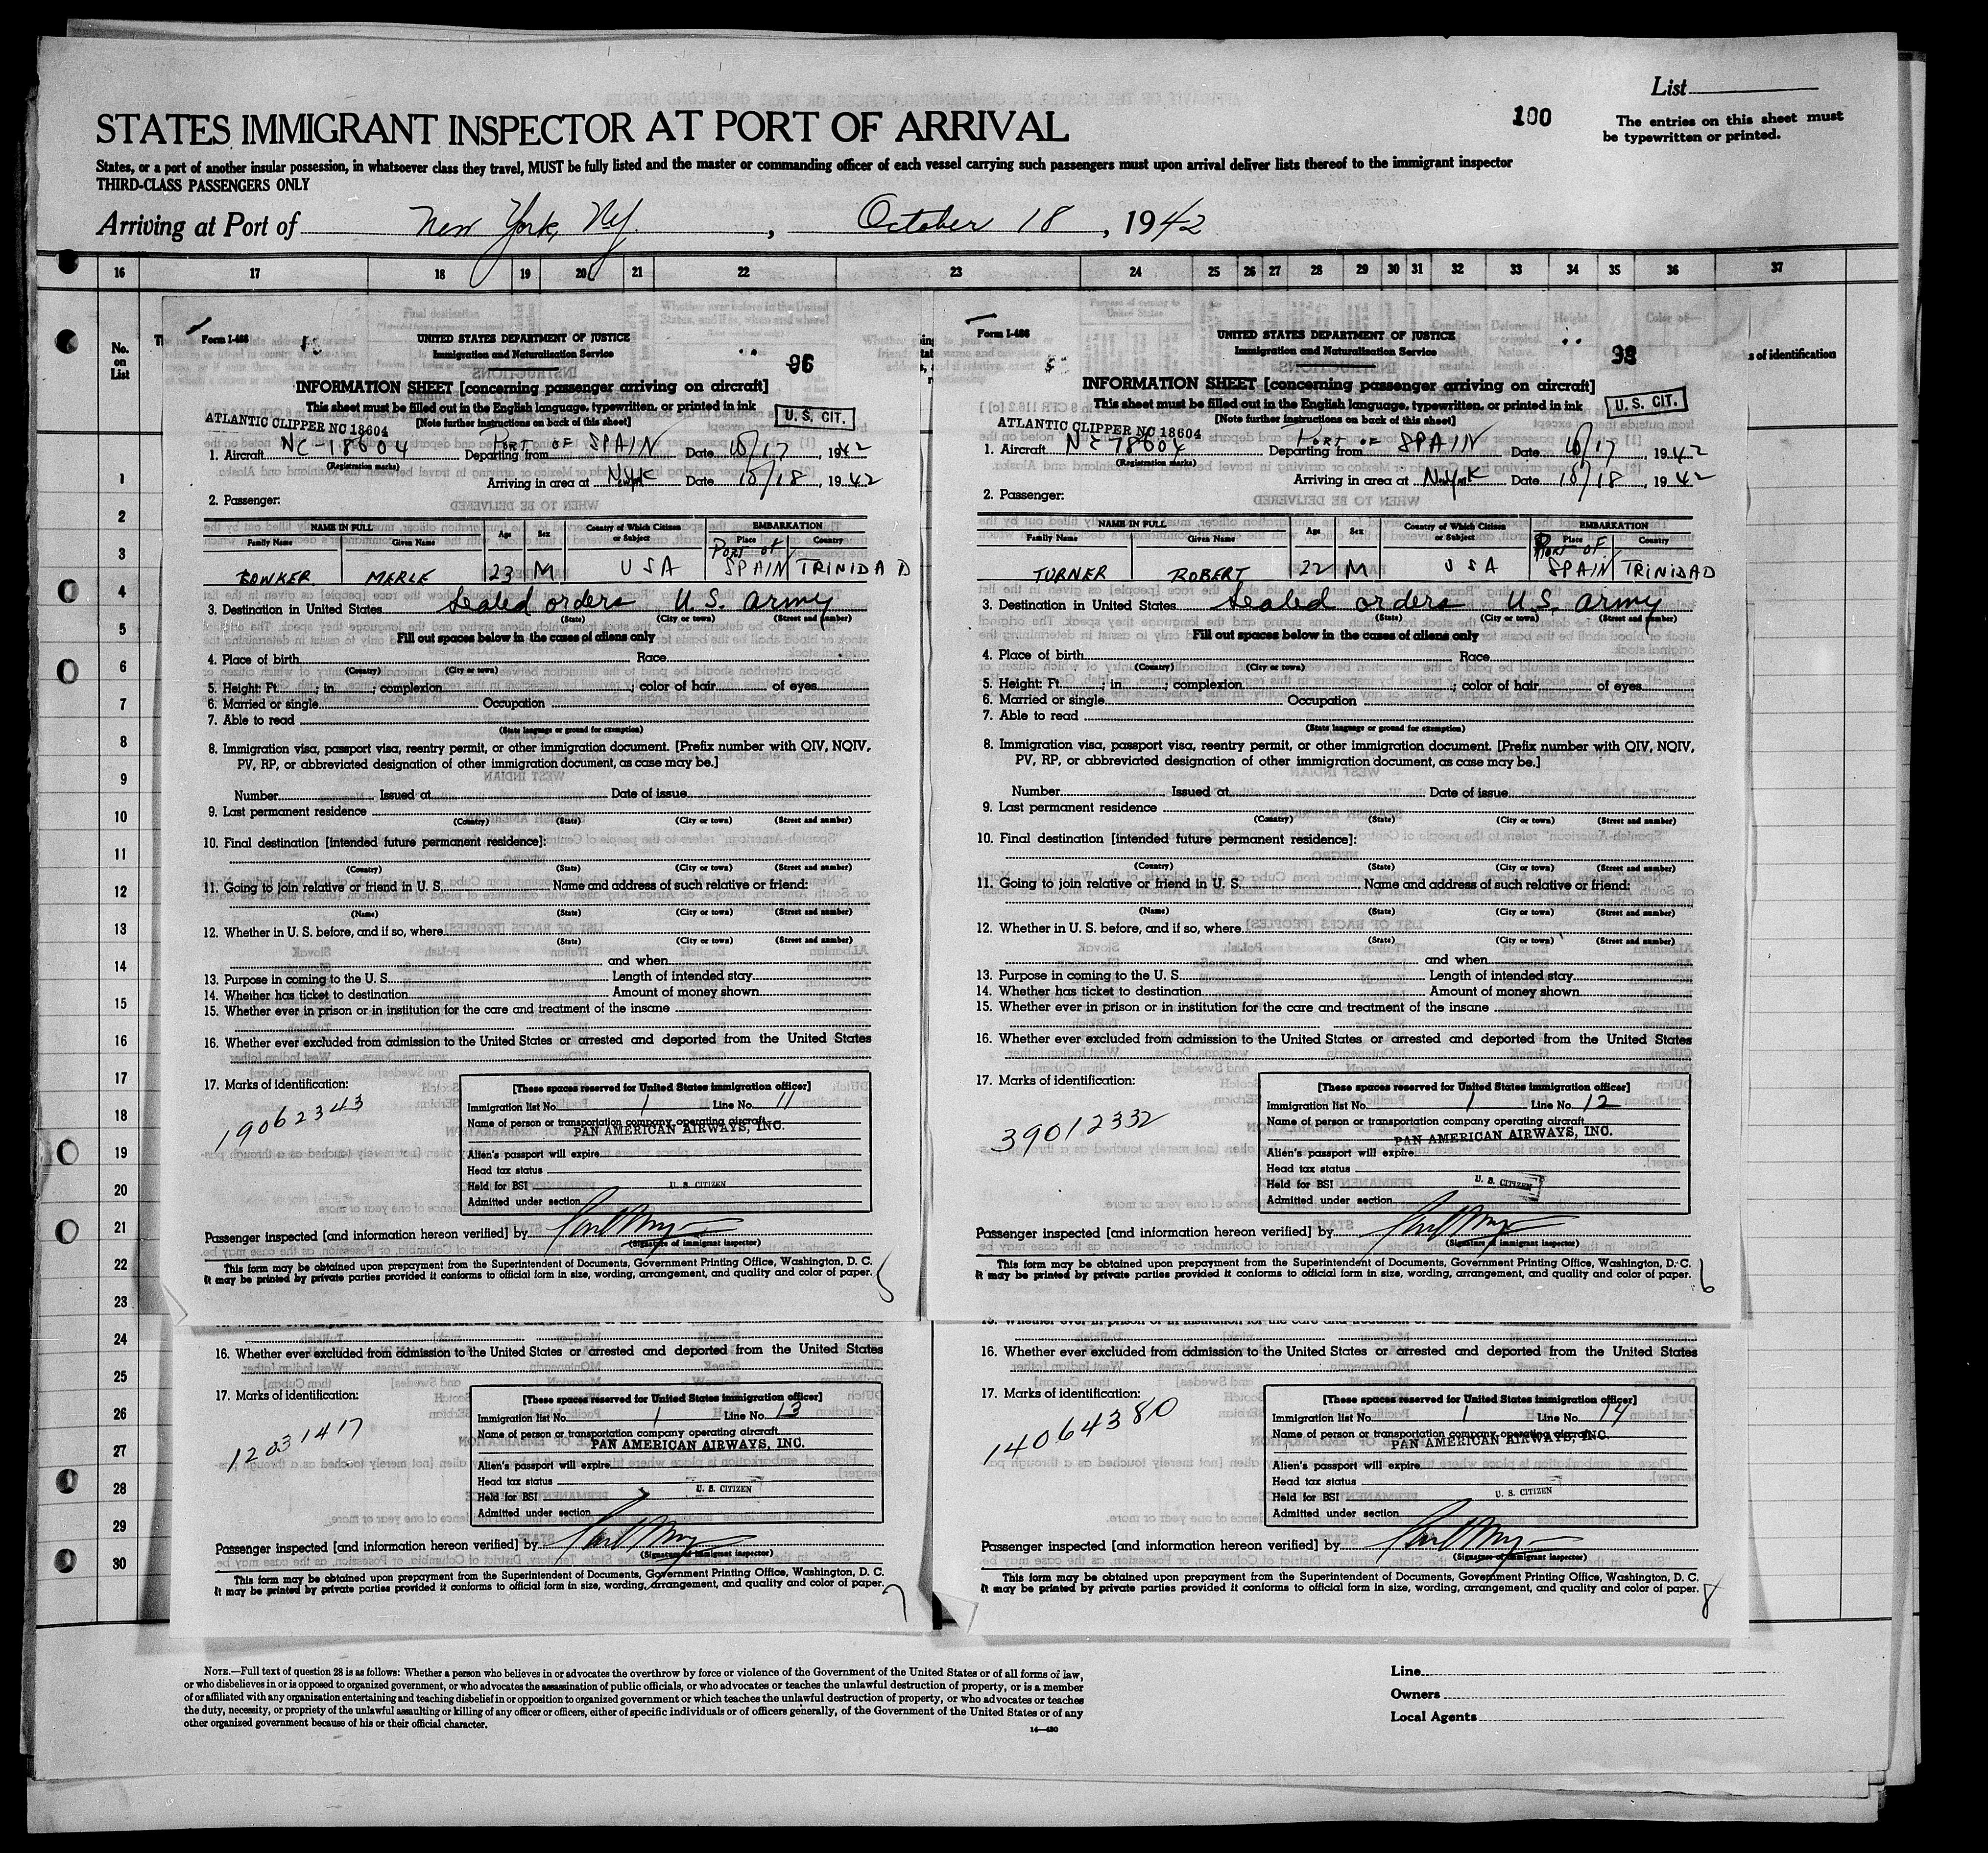 List
STATES IMMIGRANT INSPECTOR AT PORT OF ARRIVAL
100
The entries on this sheet must
be typewritten or printed.
States, or a port of another insular possession, in whatsoever class they travel, MUST be fully listed and the master or commanding officer of each vessel carrying such passengers must upon arrival deliver lists thereof to the immigrant inspector
THIRD-CLASS PASSENGERS ONLY
Arriving at Port of New York, Ny., October 18, 1942
16 17 18 19 20 21 22 23 24 25 26 27 28 29 30 31 32 33 34 35 36 37
No. on List
s of identification
1
2
3
4
5
6
7
8
9
10
11
12
13
14
15
16
17
18
19
20
21
22
23
24
25
26
27
28
29
30
Form I-466
UNITED STATES DEPARTMENT OF JUSTICE
Immigration and Naturalisation Service
96
INFORMATION SHEET [concerning passenger arriving on aircraft]
This sheet must be filled out in the English language, typewritten, or printed in ink
U. S. CIT.
[Note further instructions on back of this sheet]
ATLANTIC CLIPPER NC 18604
1. Aircraft NC-18604 Departing from PORT OF SPAIN Date 10/17, 1942
(Registration marks)
Arriving in area at N.Y.K Date 10/18, 1942
2. Passenger:
NAME IN FULL Age Sex Country of Which Citizen or Subject EMBARKATION
Family Name Given Name Place Country
BOWKER MERLE 23 M USA PORT OF SPAIN TRINIDAD
3. Destination in United States Sealed orders U.S. Army
(State) (City or town) (Street and number)
Fill out spaces below in the cases of aliens only
4. Place of birth Race
(Country) (City or town)
5. Height: Ft.; in.; complexion; color of hair of eyes
6. Married or single Occupation
7. Able to read
(State language or ground for exemption)
8. Immigration visa, passport visa, reentry permit, or other immigration document. [Prefix number with QIV, NQIV,
PV, RP, or abbreviated designation of other immigration document, as case may be.]
Number Issued at Date of issue
9. Last permanent residence
(Country) (State) (City or town) (Street and number)
10. Final destination [intended future permanent residence]:
(Country) (State) (City or town) (Street and number)
11. Going to join relative or friend in U. S. Name and address of such relative or friend:
(Name) (State) (City or town) (Street and number)
12. Whether in U. S. before, and if so, where
(State) (City or town) (Street and number)
and when
13. Purpose in coming to the U. S. Length of intended stay
14. Whether has ticket to destination Amount of money shown
15. Whether ever in prison or in institution for the care and treatment of the insane
16. Whether ever excluded from admission to the United States or arrested and deported from the United States
17. Marks of identification:
19062343
[These spaces reserved for United States immigration officer]
Immigration list No. 1 Line No. 11
Name of person or transportation company operating aircraft
PAN AMERICAN AIRWAYS, INC.
Alien's passport will expire
Head tax status
Held for BSI U. S. CITIZEN
Admitted under section
Passenger inspected [and information hereon verified] by
(Signature of immigrant inspector)
This form may be obtained upon prepayment from the Superintendent of Documents, Government Printing Office, Washington, D. C.
It may be printed by private parties provided it conforms to official form in size, wording, arrangement, and quality and color of paper.
5
Form I-466
UNITED STATES DEPARTMENT OF JUSTICE
Immigration and Naturalisation Service
98
INFORMATION SHEET [concerning passenger arriving on aircraft]
This sheet must be filled out in the English language, typewritten, or printed in ink
U. S. CIT.
[Note further instructions on back of this sheet]
ATLANTIC CLIPPER NC 18604
1. Aircraft NC 18604 Departing from PORT OF SPAIN Date 10/17, 1942
(Registration marks)
Arriving in area at N.Y.K Date 10/18, 1942
2. Passenger:
NAME IN FULL Age Sex Country of Which Citizen or Subject EMBARKATION
Family Name Given Name Place Country
TURNER ROBERT 22 M USA PORT OF SPAIN TRINIDAD
3. Destination in United States Sealed orders U.S. Army
(State) (City or town) (Street and number)
Fill out spaces below in the cases of aliens only
4. Place of birth Race
(Country) (City or town)
5. Height: Ft.; in.; complexion; color of hair of eyes
6. Married or single Occupation
7. Able to read
(State language or ground for exemption)
8. Immigration visa, passport visa, reentry permit, or other immigration document. [Prefix number with QIV, NQIV,
PV, RP, or abbreviated designation of other immigration document, as case may be.]
Number Issued at Date of issue
9. Last permanent residence
(Country) (State) (City or town) (Street and number)
10. Final destination [intended future permanent residence]:
(Country) (State) (City or town) (Street and number)
11. Going to join relative or friend in U. S. Name and address of such relative or friend:
(Name) (State) (City or town) (Street and number)
12. Whether in U. S. before, and if so, where
(State) (City or town) (Street and number)
and when
13. Purpose in coming to the U. S. Length of intended stay
14. Whether has ticket to destination Amount of money shown
15. Whether ever in prison or in institution for the care and treatment of the insane
16. Whether ever excluded from admission to the United States or arrested and deported from the United States
17. Marks of identification:
39012332
[These spaces reserved for United States immigration officer]
Immigration list No. 1 Line No. 12
Name of person or transportation company operating aircraft
PAN AMERICAN AIRWAYS, INC.
Alien's passport will expire
Head tax status
Held for BSI U. S. CITIZEN
Admitted under section
Passenger inspected [and information hereon verified] by
(Signature of immigrant inspector)
This form may be obtained upon prepayment from the Superintendent of Documents, Government Printing Office, Washington, D. C.
It may be printed by private parties provided it conforms to official form in size, wording, arrangement, and quality and color of paper.
6
16. Whether ever excluded from admission to the United States or arrested and deported from the United States
17. Marks of identification:
12031417
[These spaces reserved for United States immigration officer]
Immigration list No. 1 Line No. 13
Name of person or transportation company operating aircraft
PAN AMERICAN AIRWAYS, INC.
Alien's passport will expire
Head tax status
Held for BSI U. S. CITIZEN
Admitted under section
Passenger inspected [and information hereon verified] by
(Signature of immigrant inspector)
This form may be obtained upon prepayment from the Superintendent of Documents, Government Printing Office, Washington, D. C.
It may be printed by private parties provided it conforms to official form in size, wording, arrangement, and quality and color of paper.
7
16. Whether ever excluded from admission to the United States or arrested and deported from the United States
17. Marks of identification:
14064380
[These spaces reserved for United States immigration officer]
Immigration list No. 1 Line No. 14
Name of person or transportation company operating aircraft
PAN AMERICAN AIRWAYS, INC.
Alien's passport will expire
Head tax status
Held for BSI U. S. CITIZEN
Admitted under section
Passenger inspected [and information hereon verified] by
(Signature of immigrant inspector)
This form may be obtained upon prepayment from the Superintendent of Documents, Government Printing Office, Washington, D. C.
It may be printed by private parties provided it conforms to official form in size, wording, arrangement, and quality and color of paper.
8
NOTE.—Full text of question 28 is as follows: Whether a person who believes in or advocates the overthrow by force or violence of the Government of the United States or of all forms of law,
or who disbelieves in or is opposed to organized government, or who advocates the assassination of public officials, or who advocates or teaches the unlawful destruction of property, or is a member
of or affiliated with any organization entertaining and teaching disbelief in or opposition to organized government or which teaches the unlawful destruction of property, or who advocates or teaches
the duty, necessity, or propriety of the unlawful assaulting or killing of any officer or officers, either of specific individuals or of officers generally, of the Government of the United States or of any
other organized government because of his or their official character.
14—420
Line
Owners
Local Agents